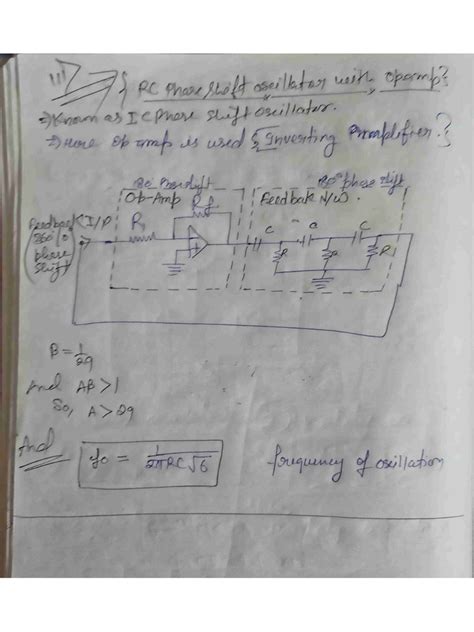 RC Phase shift oscillator with opamp
⇒ Known as IC Phase shift oscillator.
⇒ Here op amp is used { Inverting Amplifier. }
180° phase shift
Op-Amp
Feedback N/W.
Feedback I/P
360°/0
phase
shift
R1
Rf
C
C
C
R
R
R
B = 1/29
And AB > 1
So, A > 29
And
fo = 1/2πRC√6
frequency of oscillation